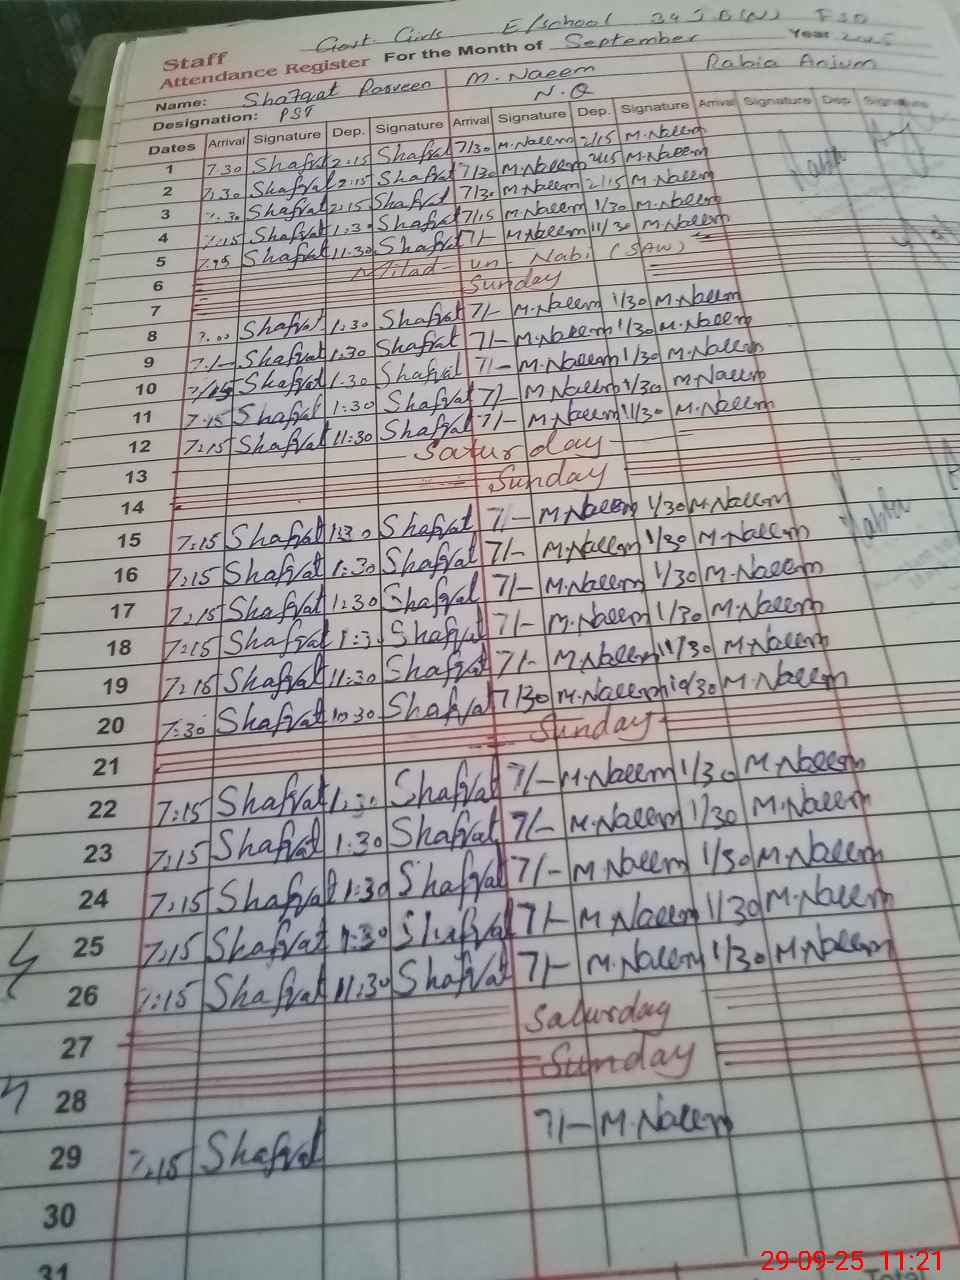 Govt. Girls E/school
Staff
Attendance Register For the Month of September Year 2025
Name: Shafqat Parveen M. Naeem Rabia Anjum
Designation: PST N.Q
Dates Arrival Signature Dep. Signature Arrival Signature Dep. Signature Arrival Signature Dep. Signature
1 7.30 Shafqat 2:15 Shafqat 7/30 M.Naeem 2/15 M.Naeem
2 7:30 Shafqat 2:15 Shafqat 7/30 M.Naeem 2/15 M.Naeem
3 7.30 Shafqat 2:15 Shafqat 7/30 M.Naeem 2/15 M.Naeem
4 7:15 Shafqat 1:30 Shafqat 7/15 M.Naeem 1/30 M.Naeem
5 7.15 Shafqat 11:30 Shafqat 7/- M.Naeem 11/30 M.Naeem
6 Milad-un-Nabi (SAW)
7 Sunday
8 7.00 Shafqat 1:30 Shafqat 7/- M.Naeem 1/30 M.Naeem
9 7/- Shafqat 1:30 Shafqat 7/- M.Naeem 1/30 M.Naeem
10 7/15 Shafqat 1:30 Shafqat 7/- M.Naeem 1/30 M.Naeem
11 7:15 Shafqat 1:30 Shafqat 7/- M.Naeem 1/30 M.Naeem
12 7:15 Shafqat 11:30 Shafqat 7/- M.Naeem 11/30 M.Naeem
13 Saturday
14 Sunday
15 7:15 Shafqat 1:30 Shafqat 7/- M.Naeem 1/30 M.Naeem
16 7:15 Shafqat 1:30 Shafqat 7/- M.Naeem 1/30 M.Naeem
17 7:15 Shafqat 1:30 Shafqat 7/- M.Naeem 1/30 M.Naeem
18 7:15 Shafqat 1:30 Shafqat 7/- M.Naeem 1/30 M.Naeem
19 7:15 Shafqat 11:30 Shafqat 7/- M.Naeem 11/30 M.Naeem
20 7:30 Shafqat 10:30 Shafqat 7/30 M.Naeem 10/30 M.Naeem
21 Sunday
22 7:15 Shafqat 1:30 Shafqat 7/- M.Naeem 1/30 M.Naeem
23 7:15 Shafqat 1:30 Shafqat 7/- M.Naeem 1/30 M.Naeem
24 7:15 Shafqat 1:30 Shafqat 7/- M.Naeem 1/30 M.Naeem
25 7:15 Shafqat 1:30 Shafqat 7/- M.Naeem 1/30 M.Naeem
26 7:15 Shafqat 11:30 Shafqat 7/- M.Naeem 1/30 M.Naeem
27 Saturday
28 Sunday
29 7:15 Shafqat 7/- M.Naeem
30
31
Total
29-09-25 11:21